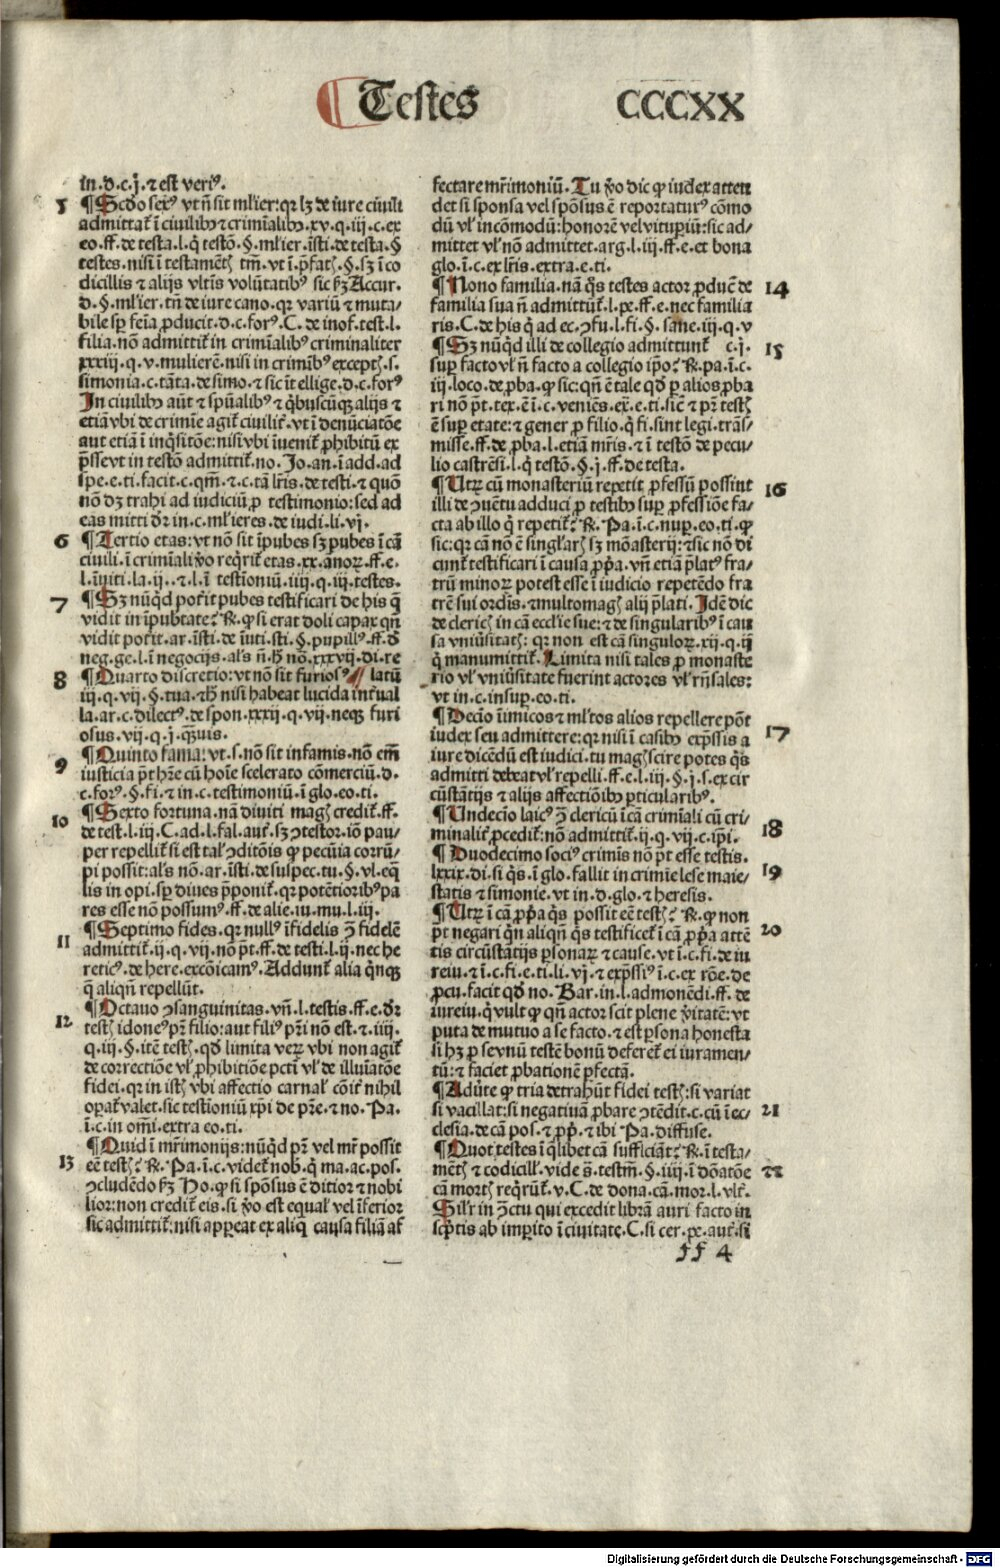 Testes
CCCXX
in.d.c.j. ⁊ est veriꝰ.
5
¶Scḋo sexꝰ vt n̄ sit ml̄ier: qꝛ lꝫ de iure ciuili
admittat̃ ī ciuilibꝰ ⁊ crimīalibꝰ.xv.q.iij.c.ex
eo.ff.de testa.l.q̄ testō.§.ml̄ier.īsti.de testa.§
testes.nisi ī testamēt̄ tm̄.vt ī p̄fat̄.§.sꝫ ī co
dicillis ⁊ alijs vltīs volūtatibꝰ sic ẜꝫ Accur.
d.§.ml̄ier.tn̄ de iure cano.qꝛ variū ⁊ muta⸗
bile sp̄ feīa ꝓducit.d.c.forꝰ.C.de inof.test.l.
filia.nō admittit̃ in crimīalibꝰ criminaliter
xxxiij.q.v.mulierē.nisi in crimībꝰ except̄.s.
simonia.c.tāta.de simo.⁊ sic īt ellige.d.c.forꝰ
In ciuilibꝰ aūt ⁊ spūalibꝰ ⁊ q̇buscūqꝫ alijs ⁊
etiā vbi de crimīe agit̃ ciuilit̃.vt ī denūciatōe
aut etiā ī inq̇sitōe: nisi vbi īuenit̃ ꝓhibitū ex
p̄sse vt in testō admittit̃.no.Jo.an.ī add.ad
spe.e.ti.facit.c.qm̄.⁊.c.tā lr̄is.de testi.⁊ quō
nō dꝫ trahi ad iudiciū ꝑ testimonio: sed ad
eas mitti dr̄ in.c.ml̄ieres.de iudi.li.vj.
6
¶Tertio etas: vt nō sit īpubes sꝫ pubes ī cā
ciuili.ī crimīali v̊o req̇rit̃ etas.xx.anoꝝ.ff.e.
l.īuiti.la.ij.⁊.l.ī testioniū.iiij.q.iij.testes.
7
¶Sꝫ nūq̇d poťit pubes testificari de his q̄
vidit in īpubtate: ꝶ.ꝙ si erat doli capax qn̄
vidit poťit.ar.īsti.de īuti.sti.§.pupillꝰ.ff.d̄
neg.ge.l.ī negocijs.al̄s n̄.ħ nō.xxxvij.di.re
8
¶Quarto discretio: vt nō sit furiosꝰ latū
iij.q.vij.§.tua.⁊ ħ nisi habeat lucida inťual
la.ar.c.dilectꝰ.de spon.xxxij.q.vij.neqꝫ furi
osus.vij.q.j.q̄uis.
9
¶Quinto fama: vt.s.nō sit infamis.nō em̄
iusticia p̄t hr̄e cū hoīe scelerato cōmerciū.d.
c.forꝰ.§.fi.⁊ in.c.testimoniū.ī glo.eo.ti.
10
¶Sexto fortuna.nā diuiti magꝭ credit̃.ff.
de test.l.iij.C.ad.l.fal.auť.sꝫ ꝯtestor.iō pau⸗
per repellit̃ si est talꝭ ꝯditōis ꝙ pecūia corrū⸗
pi possit: al̄s nō.ar.īsti.de suspec.tu.§.vl.eq̄
lis in opi.sp̄ diues p̄ponit̃.qꝛ potētioribꝰ pa
res esse nō possumꝰ.ff.de alie.iu.mu.l.iij.
11
¶Septimo fides.qꝛ nullꝰ īfidelis ꝯ̄ fidelē
admittit̃.ij.q.vij.nō p̄t.ff.de testi.l.ij.nec he
reticꝰ.de here.excōicamꝰ.Addunt̃ alia q̇nqꝫ
q̄ aliqn̄ repellūt.
12
¶Octauo ꝯsanguinitas.vn̄.l.testis.ff.e.dr̄
testꝭ idoneꝰ pr̄ filio: aut filiꝰ pr̄i nō est.⁊.iiij.
q.iij.§.itē testꝭ.qḋ limita veꝝ vbi non agit̃
de correctiōe vl̄ ꝓhibitiōe pctī vl̄ de illuīatōe
fidei.qꝛ in istꝭ vbi affectio carnalꝭ cōiť nihil
oꝑat̃ valet.sic testioniū xp̄i de pr̄e.⁊ no.Pa.
ī.c.in omī.extra eo.ti.
13
¶Quid ī mr̄imonijs: nūq̇d pr̄ vel mr̄ possit
eē testꝭ: ꝶ.Pa.ī.c.videt̃ nob̄.q̇ ma.ac.pos.
ꝯcludēdo ẜꝫ Ho.ꝙ si spōsus ē ditior ⁊ nobi
lior: non credit̃ eis.si v̊o est equalꝭ vel īferior
sic admittit̃: nisi appeat ex aliq̄ causa filiā af
fectare mr̄imoniū.Tu v̊o dic ꝙ iudex atten
det si sponsa vel spōsus ē reportaturꝰ cōmo
dū vl̄ incōmodū: honorē vel vituꝑiū: sic ad⸗
mittet vl̄ nō admittet.arg.l.iij.ff.e.et bona
glo.ī.c.ex lr̄is.extra.e.ti.
14
¶Nono familia.nā q̇s testes actor ꝓduc̄ de
familia sua n̄ admittūt̃.l.pe.ff.e.nec familia
ris.C.de his q̇ ad ec.ꝯfu.l.fi.§.sane.iij.q.v
15
¶Sꝫ nūq̇d illi de collegio admittunt̃ c.j.
suꝑ facto vl̄ n̄ facto a collegio ip̄o: ꝶ.pa.ī.c.
iij.loco.de ꝓba.ꝙ sic: qn̄ ē tale qḋ ꝑ alios ꝓba
ri nō p̄t.tex.ē ī.c.veniēs.ex̄.e.ti.sic̄ ⁊ pr̄ testꝭ
ē suꝑ etate: ⁊ gener ꝓ filio.q̇ fi.sunt legi.trās⸗
misse.ff.de ꝓba.l.etiā mr̄is.⁊ ī testō de pecu⸗
lio castrēsi.l.q̇ testō.§.j.ff.de testa.
16
¶Utꝝ cū monasteriū repetit ꝓfessū possint
illi de ꝯuētu adduci ꝓ testibꝰ suꝑ ꝓfessiōe fa⸗
cta ab illo q̇ repetit̃: ꝶ.Pa.ī.c.nuꝑ.eo.ti.ꝙ
sic: qꝛ cā nō ē singl̄arꝭ sꝫ mōasterij: ⁊ sic nō di
cunt̃ testificari ī causa ꝓp̄a.vn̄ etiā p̄latꝰ fra⸗
trū minoꝝ potest esse ī iudicio repetēdo fra
trē sui ordīs.⁊ multo magꝭ alij p̄lati.Idē dic
de clericꝭ in cā eccl̄ie sue: ⁊ de singularibꝰ ī cau
sa vniūsitatꝭ: qꝛ non est cā singuloꝝ.xij.q.ij
q̇ manumittit̃.Limita nisi tales ꝓ monaste
rio vl̄ vniūsitate fuerint actores vl̄ rn̄sales:
vt in.c.insuꝑ.eo.ti.
17
¶Decīo īimicos ⁊ ml̄tos alios repellere pōt
iudex seu admittere: qꝛ nisi ī casibꝰ exp̄ssis a
iure dicēdū est iudici.tu magꝭ scire potes q̇s
admitti debeat vl̄ repelli.ff.e.l.iij.§.j.s.ex cir
cūstātijs ⁊ alijs affectiōibꝰ ꝑticularibꝰ.
18
¶Undecīo laicꝰ ꝯ̄ clericū ī cā crimīali cū cri⸗
minalit̃ ꝓcedit̃: nō admittit̃.ij.q.vij.c.ip̄i.
19
¶Duodecimo sociꝰ crimīs nō p̄t esse testis.
lxxix.di.si q̇s.ī glo.fallit in crimīe lese maie⸗
statis ⁊ simonie.vt in.d.glo.⁊ heresis.
20
¶Utꝝ ī cā ꝓp̄a q̇s possit eē testꝭ: ꝶ.ꝙ non
p̄t negari q̇n aliqn̄ q̇s testificet̃ ī cā ꝓp̄a attē
tis circūstātijs ꝑsonaꝝ ⁊ cause.vt ī.c.fi.de iu
reiu.⁊ ī.c.fi.e.ti.li.vj.⁊ exp̄ssiꝰ ī.c.ex rōe.de
ꝓcu.facit qḋ no.Bar.in.l.admonēdi.ff.de
iureiu.q̇ vult ꝙ qn̄ actor scit plene v̄itatē: vt
puta de mutuo a se facto.⁊ est ꝑsona honesta
si hꝫ ꝓ se vnū testē bonū deferet̃ ei iuramen⸗
tū: ⁊ faciet ꝓbationē ꝑfectā.
21
¶Aduťe ꝙ tria detrahūt fidei testꝭ: si variat
si vacillat: si negatiuā ꝓbare ꝯtēdit.c.cū ī ec⸗
clesia.de cā pos.⁊ ꝓp̄.⁊ ibi Pa.diffuse.
22
¶Quot testes ī q̇libet cā sufficiāt: ꝶ.ī testa⸗
mētꝭ ⁊ codicillꝭ.vide s̄.testm̄.§.iiij.ī dōatōe
cā mortꝭ req̇rūt̃.v.C.de dona.cā.mor.l.vlt̃.
Sil̄r in ꝯ̄ctu qui excedit librā auri facto in
sc̄ptis ab imꝑito ī ciuitate.C.si cer.pe.auť.si
ſſ 4
Digitalisierung gefördert durch die Deutsche Forschungsgemeinschaft - DFG